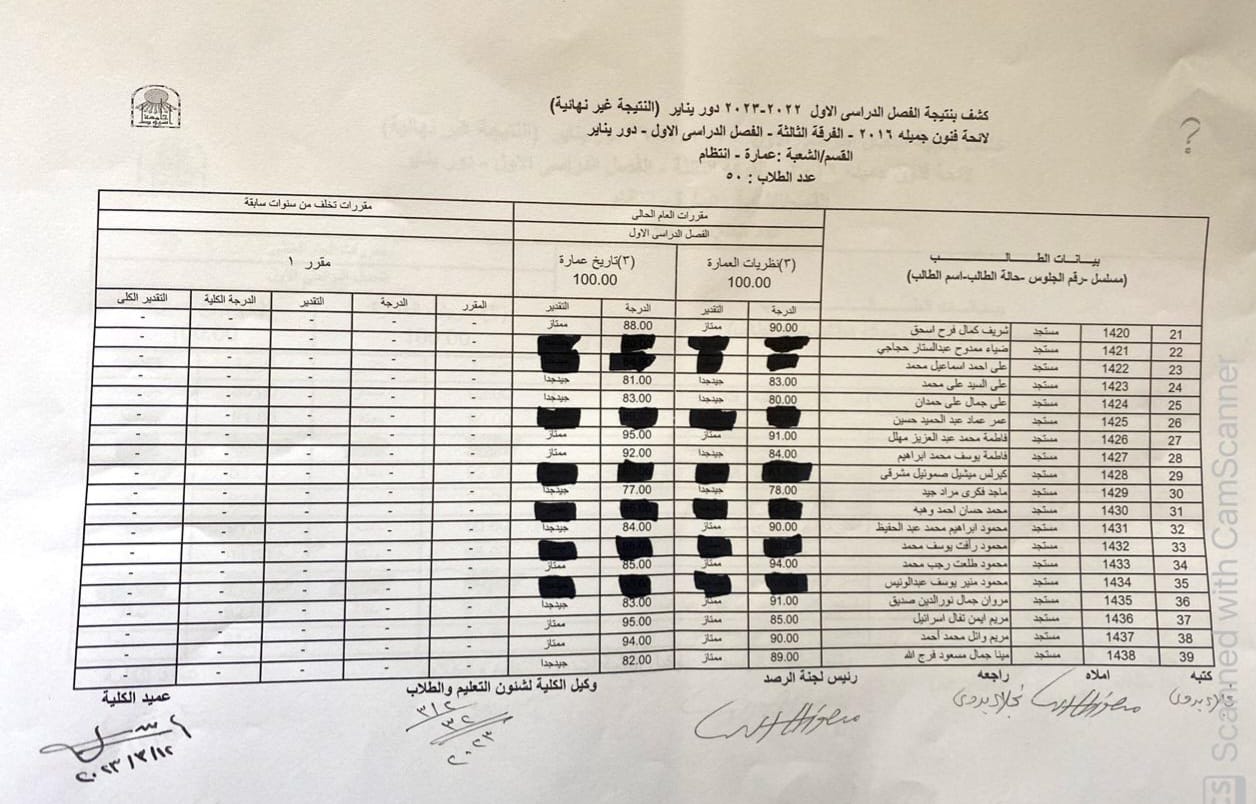 كشف بنتيجة الفصل الدراسى الاول ٢٠٢٢-٢٠٢٣ دور يناير (النتيجة غير نهائية)
لائحة فنون جميله ٢٠١٦ - الفرقة الثالثة - الفصل الدراسى الاول - دور يناير
القسم/الشعبة :عمارة - انتظام
عدد الطلاب : ٥٠
بيـــانـــات الطـــــالـــــــب
(مسلسل -رقم الجلوس -حالة الطالب-اسم الطالب)
مقررات العام الحالى
مقررات تخلف من سنوات سابقة
الفصل الدراسى الاول
(٣)نظريات العمارة
100.00
(٣)تاريخ عمارة
100.00
مقرر ١
الدرجة التقدير الدرجة التقدير المقرر الدرجة التقدير الدرجة الكلية التقدير الكلى
21 1420 مستجد شريف كمال فرح اسحق 90.00 ممتاز 88.00 ممتاز - - - - -
22 1421 مستجد ضياء ممدوح عبدالستار حجاجي - - - - -
23 1422 مستجد على احمد اسماعيل محمد - - - - -
24 1423 مستجد على السيد على محمد 83.00 جيدجدا 81.00 جيدجدا - - - - -
25 1424 مستجد على جمال على حمدان 80.00 جيدجدا 83.00 جيدجدا - - - - -
26 1425 مستجد عمر عماد عبد الحميد حسين - - - - -
27 1426 مستجد فاطمة محمد عبد العزيز مهلل 91.00 ممتاز 95.00 ممتاز - - - - -
28 1427 مستجد فاطمة يوسف محمد ابراهيم 84.00 جيدجدا 92.00 ممتاز - - - - -
29 1428 مستجد كيرلس ميشيل صموئيل مشرقى - - - - -
30 1429 مستجد ماجد فكرى مراد جيد 78.00 جيدجدا 77.00 جيدجدا - - - - -
31 1430 مستجد محمد حسان احمد وهبه - - - - -
32 1431 مستجد محمود ابراهيم محمد عبد الحفيظ 90.00 ممتاز 84.00 جيدجدا - - - - -
33 1432 مستجد محمود رأفت يوسف محمد - - - - -
34 1433 مستجد محمود طلعت رجب محمد 94.00 ممتاز 85.00 ممتاز - - - - -
35 1434 مستجد محمود منير يوسف عبدالونيس - - - - -
36 1435 مستجد مروان جمال نورالدين صديق 91.00 ممتاز 83.00 جيدجدا - - - - -
37 1436 مستجد مريم ايمن تفال اسرائيل 85.00 ممتاز 95.00 ممتاز - - - - -
38 1437 مستجد مريم وائل محمد أحمد 90.00 ممتاز 94.00 ممتاز - - - - -
39 1438 مستجد مينا جمال مسعود فرج الله 89.00 ممتاز 82.00 جيدجدا - - - - -
كتبه املاه راجعه رئيس لجنة الرصد وكيل الكلية لشئون التعليم والطلاب عميد الكلية
٢٠٢٣/٣/١٢
Scanned with CamScanner
CS